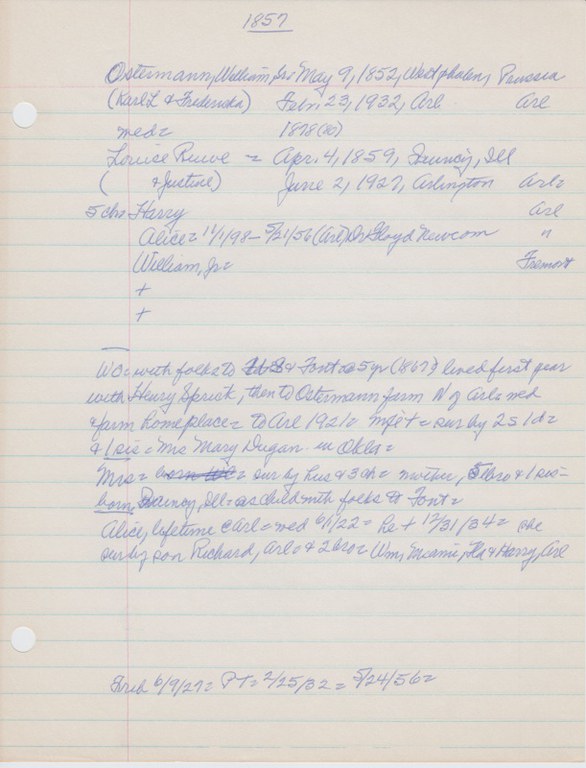 1857
Ostermann, William, Sr. May 9, 1852, Westphalen, Prussia
(Karl L & Fredericka) Febr 23, 1932, Arl Arl
med = 1878 (10)
Louise Ruwe = Apr. 4, 1859, Quincy, Ill
( & Justine) June 2, 1927, Arlington Arl =
5 chs Harry Arl
Alice = 11/1/98 - 5/21/56 (Arl) Dr Lloyd Newcom "
William, Jr = Fremont
+
+
WO = with folks to & Font @ 5 yr (1867) lived first year
with Henry Sprick, then to Ostermann farm N of Arl = med
& farm home place = to Arl 1921 = = sur by 2 s 1 d =
& 1 sis = Mrs Mary Dugan in Okla =
Mrs = sur by hus & 3 ch = mother, 5 bro & 1 sis -
born, Quincy, Ill = as child with folks to Font =
Alice, lifetime c Arl = med 6/1/22 = he + 12/31/34 = she
sur by son Richard, Arl & 2 bro = Wm, Miami, Fla & Harry, Arl
Trib 6/9/27 = PT = 2/25/32 = 5/24/56 =